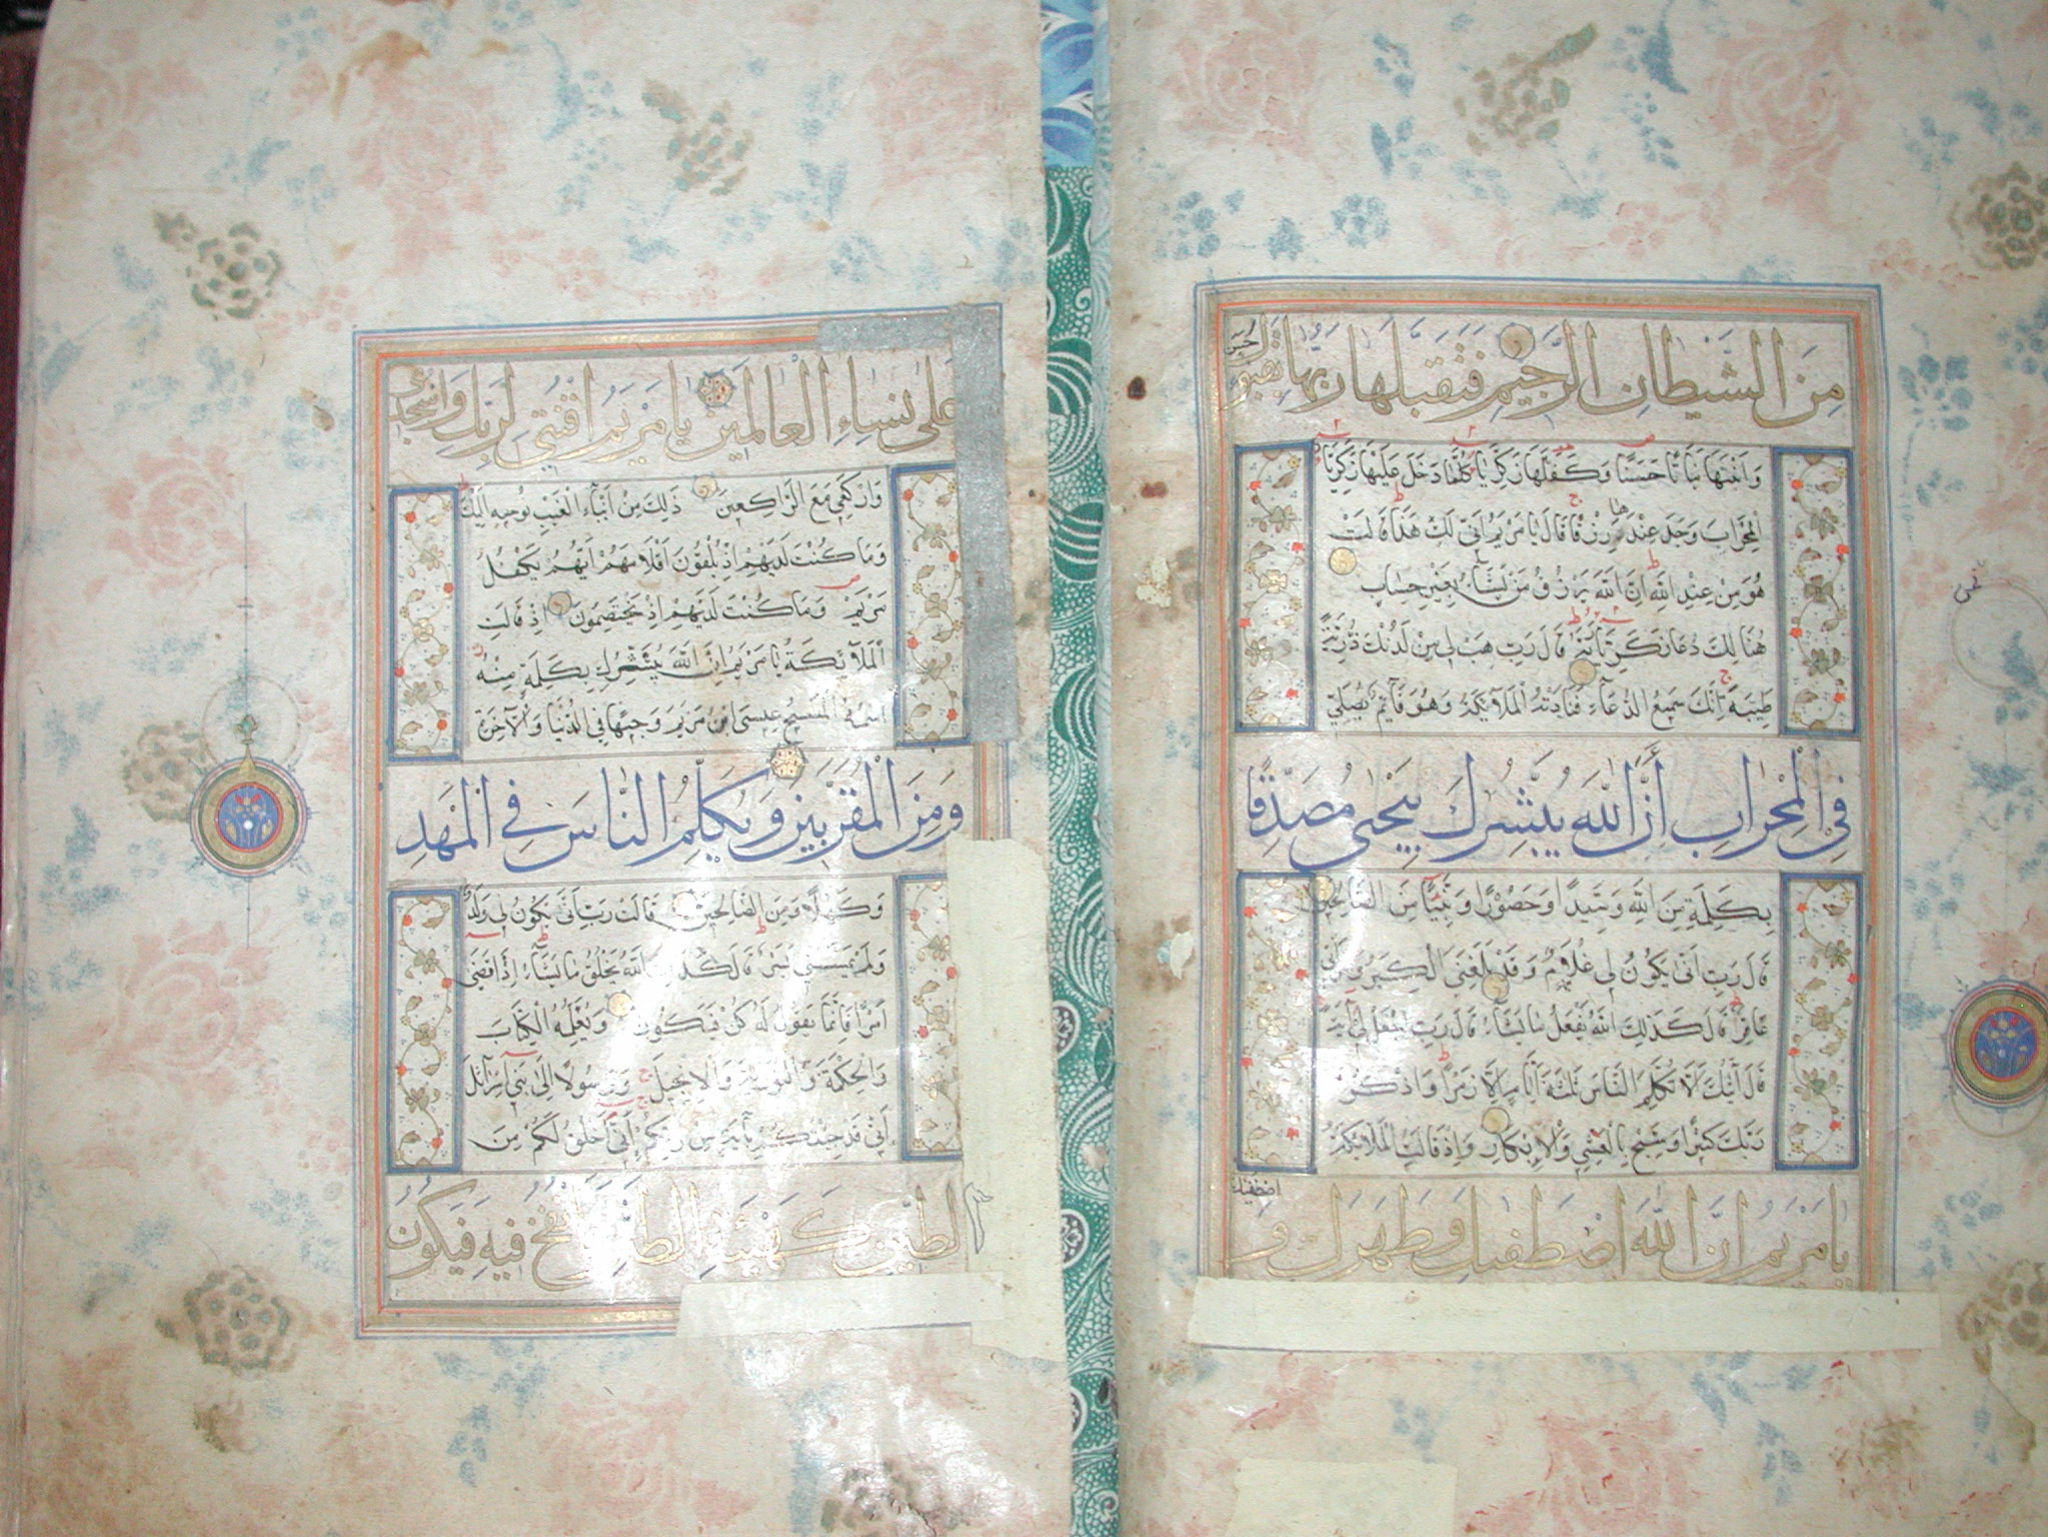 مِنَ الشَّيْطَانِ الرَّجِيمِ فَتَقَبَّلَهَا رَبُّهَا بِقَبُولٍ حَسَنٍ
وَأَنْبَتَهَا نَبَاتًا حَسَنًا وَكَفَّلَهَا زَكَرِيَّا كُلَّمَا دَخَلَ عَلَيْهَا زَكَرِيَّا
الْمِحْرَابَ وَجَدَ عِنْدَهَا رِزْقًا قَالَ يَا مَرْيَمُ أَنَّى لَكِ هَذَا قَالَتْ
هُوَ مِنْ عِنْدِ اللَّهِ إِنَّ اللَّهَ يَرْزُقُ مَنْ يَشَآءُ بِغَيْرِ حِسَابٍ
هُنَالِكَ دَعَا زَكَرِيَّا رَبَّهُ قَالَ رَبِّ هَبْ لِي مِنْ لَدُنْكَ ذُرِّيَّةً
طَيِّبَةً إِنَّكَ سَمِيعُ الدُّعَآءِ فَنَادَتْهُ الْمَلَآئِكَةُ وَهُوَ قَآئِمٌ يُصَلِّي
فِي الْمِحْرَابِ أَنَّ اللَّهَ يُبَشِّرُكَ بِيَحْيَى مُصَدِّقًا
بِكَلِمَةٍ مِنَ اللَّهِ وَسَيِّدًا وَحَصُورًا وَنَبِيًّا مِنَ الصَّالِحِينَ
قَالَ رَبِّ أَنَّى يَكُونُ لِي غُلَامٌ وَقَدْ بَلَغَنِيَ الْكِبَرُ وَامْرَأَتِي
عَاقِرٌ قَالَ كَذَلِكَ اللَّهُ يَفْعَلُ مَا يَشَآءُ قَالَ رَبِّ اجْعَلْ لِي آيَةً
قَالَ آيَتُكَ أَلَّا تُكَلِّمَ النَّاسَ ثَلَثَةَ أَيَّامٍ إِلَّا رَمْزًا وَاذْكُرْ
رَبَّكَ كَثِيرًا وَسَبِّحْ بِالْعَشِيِّ وَالْإِبْكَارِ وَإِذْ قَالَتِ الْمَلَآئِكَةُ
يَا مَرْيَمُ إِنَّ اللَّهَ اصْطَفَيكِ وَطَهَّرَكِ وَ اصْطَفَيكِ
عَلَى نِسَاءِ الْعَالَمِينَ يَا مَرْيَمُ اقْنُتِي لِرَبِّكِ وَاسْجُدِي
وَارْكَعِي مَعَ الرَّاكِعِينَ ذَلِكَ مِنْ أَنْبَآءِ الْغَيْبِ نُوحِيهِ إِلَيْكَ
وَمَا كُنْتَ لَدَيْهِمْ إِذْ يُلْقُونَ أَقْلَامَهُمْ أَيُّهُمْ يَكْفُلُ
مَرْيَمَ وَمَا كُنْتَ لَدَيْهِمْ إِذْ يَخْتَصِمُونَ إِذْ قَالَتِ
الْمَلَآئِكَةُ يَا مَرْيَمُ إِنَّ اللَّهَ يُبَشِّرُكِ بِكَلِمَةٍ مِنْهُ
اسْمُهُ الْمَسِيحُ عِيسَى ابْنُ مَرْيَمَ وَجِيهًا فِي الدُّنْيَا وَالْآخِرَةِ
وَمِنَ الْمُقَرَّبِينَ وَيُكَلِّمُ النَّاسَ فِي الْمَهْدِ
وَكَهْلًا وَمِنَ الصَّالِحِينَ قَالَتْ رَبِّ أَنَّى يَكُونُ لِي وَلَدٌ
وَلَمْ يَمْسَسْنِي بَشَرٌ قَالَ كَذَلِكِ اللَّهُ يَخْلُقُ مَا يَشَآءُ إِذَا قَضَى
أَمْرًا فَإِنَّمَا يَقُولُ لَهُ كُنْ فَيَكُونُ وَيُعَلِّمُهُ الْكِتَابَ
وَالْحِكْمَةَ وَالتَّوْرَيةَ وَالْإِنْجِيلَ وَرَسُولًا إِلَى بَنِي إِسْرَآئِلَ
أَنِّي قَدْ جِئْتُكُمْ بِآيَةٍ مِنْ رَبِّكُمْ أَنِّي أَخْلُقُ لَكُمْ مِنَ
الطِّينِ كَهَيْئَةِ الطَّيْرِ فَأَنْفُخُ فِيهِ فَيَكُونُ